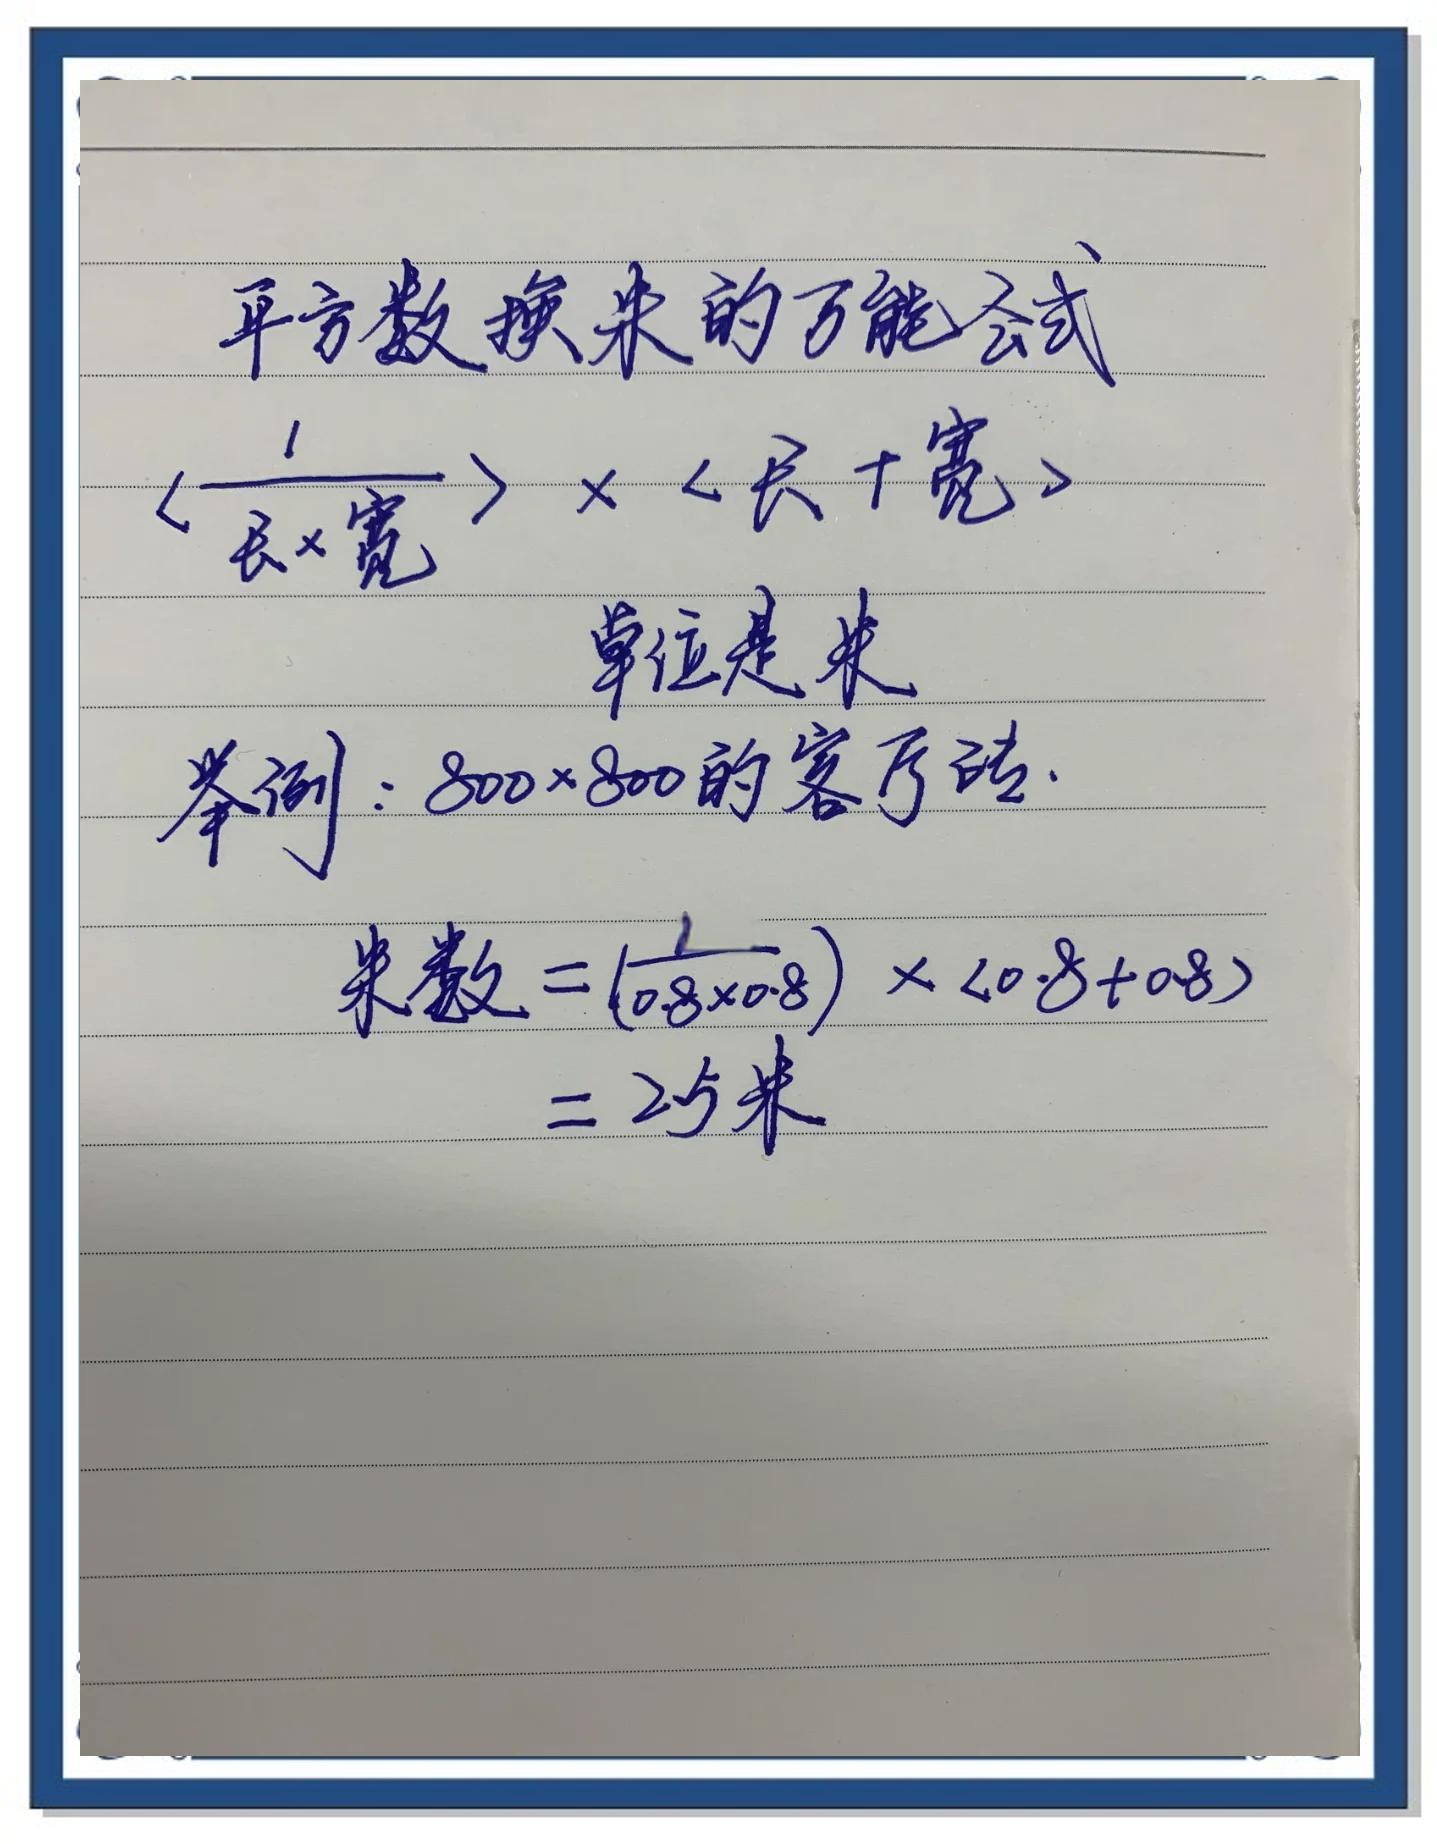 平方数换米的万能公式
<1/长×宽> × <长+宽>
单位是米
举例：800×800的客厅砖.
米数=(1/0.8×0.8) × <0.8+0.8>
=2.5米